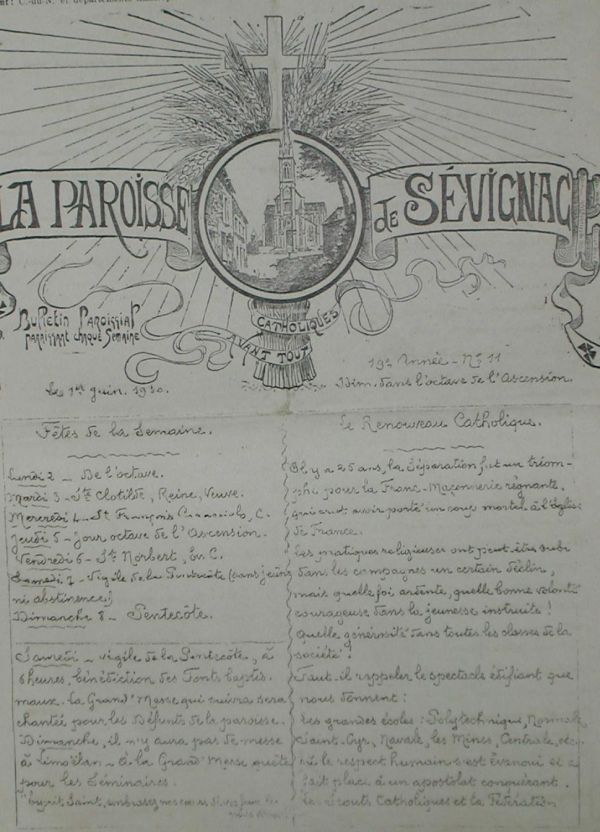 C.-du-N. et départements
LA PAROISSE
de SÉVIGNAC
Bulletin Paroissial
paraissant chaque Semaine
CATHOLIQUES
AVANT TOUT
19e Année - No 11
Le 1er Juin. 1930.
Dim. dans l'octave de l'Ascension.
Fêtes de la Semaine.
Lundi 2 - De l'octave.
Mardi 3 - Ste Clotilde, Reine, Veuve.
Mercredi 4 - St François Caracciolo, C.
Jeudi 5 - Jour octave de l'Ascension.
Vendredi 6 - St Norbert, Ev. C.
Samedi 7 - Vigile de la Pentecôte (sans jeûne
ni abstinence.)
Dimanche 8 - Pentecôte.
Samedi - vigile de la Pentecôte, à
6 heures, bénédiction des Fonts baptis-
maux. La Grand'Messe qui suivra sera
chantée pour les Défunts de la paroisse.
Dimanche, il n'y aura pas de messe
à Limoëlan - à la Grand'Messe quête
pour les Séminaires.
Esprit Saint, embrasez nos cœurs
Le Renouveau Catholique.
Il y a 25 ans, la Séparation fut un triom-
phe pour la Franc-Maçonnerie régnante,
qui crut avoir porté un coup mortel à l'Eglise
de France.
Les pratiques religieuses ont peut-être subi
dans les campagnes un certain déclin,
mais quelle foi ardente, quelle bonne volonté
courageuse dans la jeunesse instruite !
Quelle générosité dans toutes les classes de la
société !
Faut-il rappeler le spectacle édifiant que
nous donnent :
Les grandes écoles : Polytechnique, Normale,
Saint-Cyr, Navale, les Mines, Centrale, etc,
où le respect humain s'est évanoui et a
fait place à un apostolat conquérant.
Les Scouts Catholiques et la Fédération